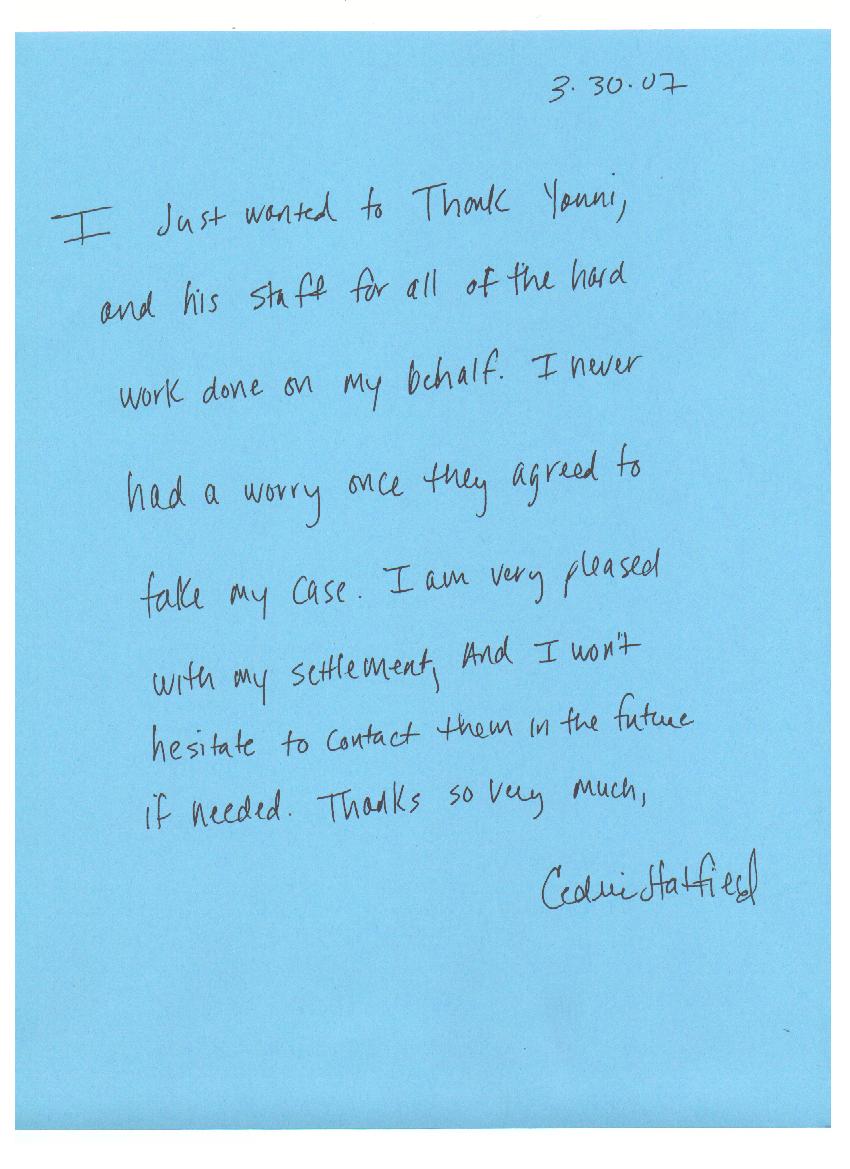 3.30.07
I Just wanted to Thank Yonni,
and his staff for all of the hard
work done on my behalf. I never
had a worry once they agreed to
take my case. I am very pleased
with my settlement, And I won't
hesitate to contact them in the future
if needed. Thanks so very much,
Cedric Hatfield